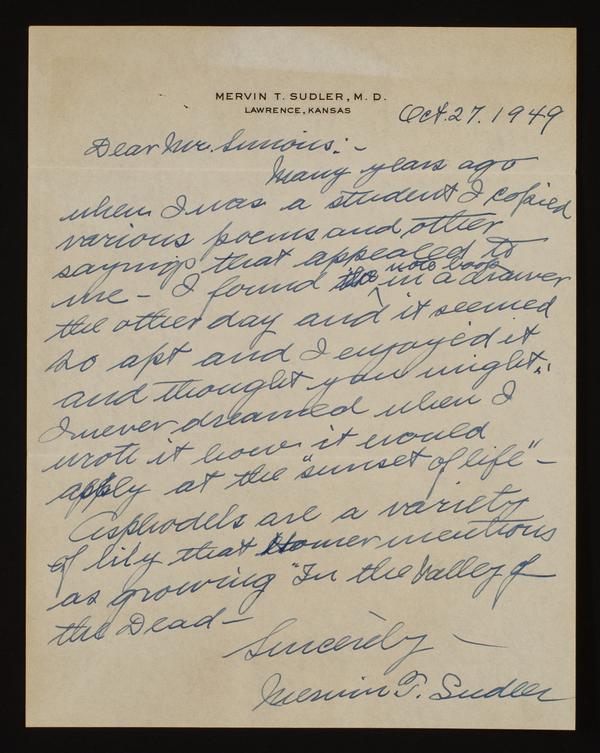 MERVIN T. SUDLER, M. D.
LAWRENCE, KANSAS
Oct. 27. 1949
Dear Mr. Simons:-
Many years ago
when I was a student I copied
various poems and other
sayings that appealed to
me - I found the note book in a drawer
the other day and it seemed
so apt and I enjoyed it
and thought you might.
I never dreamed when I
wrote it how it would
apply at the "sunset of life" -
Asphodels are a variety
of lily that Homer mentions
as growing "In the Valley of
the Dead -
Sincerely -
Mervin T. Sudler